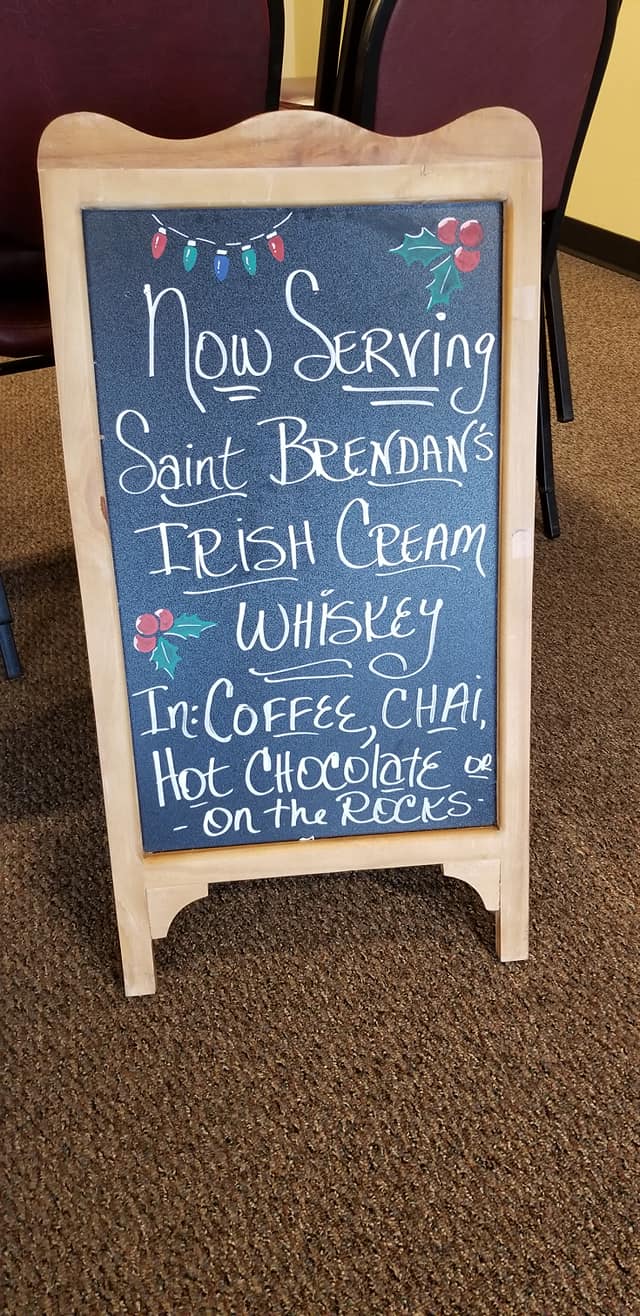 Now Serving
Saint BRENDAN'S
IRISH CREAM
WHISKEY
In: COFFEE, CHAI,
Hot CHOCOlatE OR
- On the ROCKS -